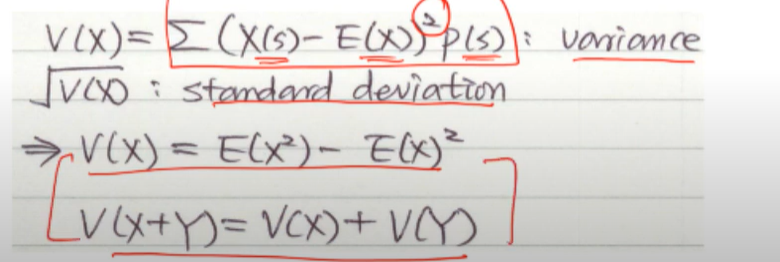 V(X) = Σ (X(s) - E(X))² p(s) : variance
√V(X) : standard deviation
⇒ V(X) = E(X²) - E(X)²
V(X+Y) = V(X) + V(Y)